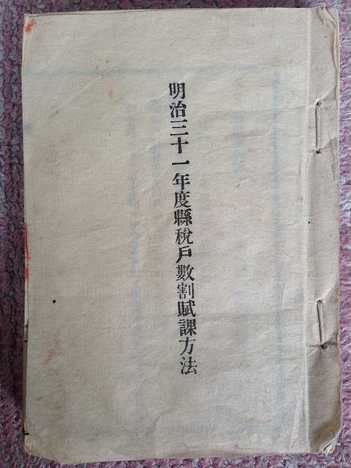 明治三十一年度縣稅戶數割賦課方法